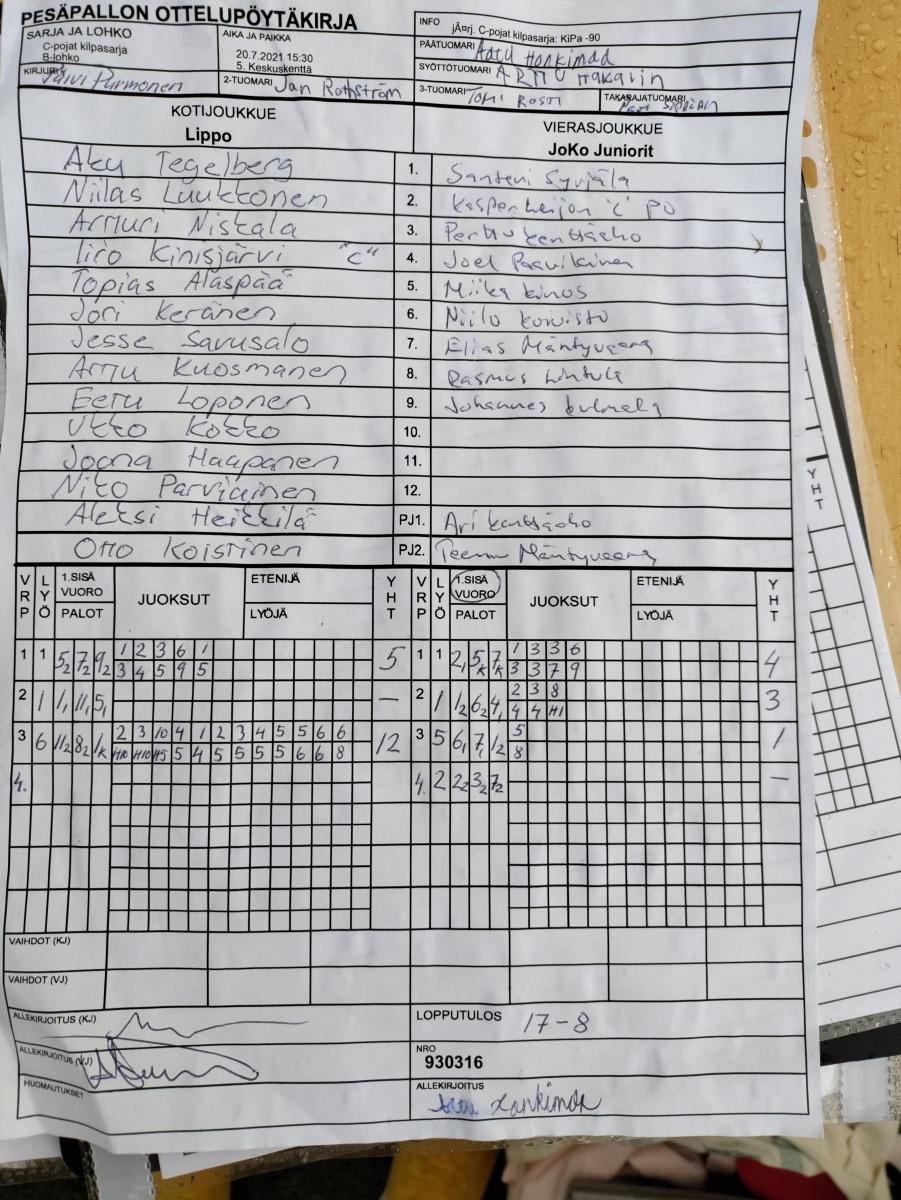 PESÄPALLON OTTELUPÖYTÄKIRJA
SARJA JA LOHKO
C-pojat kilpasarja
B-lohko
AIKA JA PAIKKA
20.7.2021 15:30
5. Keskuskenttä
INFO
jÄ¤rj. C-pojat kilpasarja: KiPa -90
PÄÄTUOMARI Hankimaa
SYÖTTÖTUOMARI ARTTU
KIRJURI Päivi Purmonen
2-TUOMARI Jan Rothström
3-TUOMARI TOMI ROSTI
TAKARAJATUOMARI
KOTIJOUKKUE
Lippo
VIERASJOUKKUE
JoKo Juniorit
Aku Tegelberg 1. Santeri Syvjälä
Niilas Luukkonen 2. "C" PU
Artturi Niskala 3. Perttu
Iiro Kinisjärvi "C" 4. Joel Paavilainen
Topias Alaspää 5. Miika
Jori Keränen 6. Niilo Koivisto
Jesse Savusalo 7. Elias Mäntyvaara
Arttu Kuosmanen 8. Rasmus
Eetu Loponen 9. Johannes
Ukko Kokko 10.
Joona Haapanen 11.
Niko Parviainen 12.
Aleksi Heikkilä PJ1. Ari
Otto Koistinen PJ2. Teemu Mäntyvaara
VRP LYÖ 1.SISÄ VUORO PALOT JUOKSUT ETENIJÄ LYÖJÄ YHT VRP LYÖ 1.SISÄ VUORO PALOT JUOKSUT ETENIJÄ LYÖJÄ YHT
1 2 3 6 1 1 3 3 6
1 1 5₂ 7₂ 9₂ 3 4 5 9 5 5 1 1 2₁ 5K 7K 3 3 7 9 4
2 3 8
2 1 1₁ 11₁ 5₁ – 2 1 1₂ 6₂ 4₁ 4 4 H1 3
2 3 10 4 1 2 3 4 5 5 6 6 5
3 6 11₂ 8₂ 1K H10 H10 H5 5 4 5 5 5 5 6 6 8 12 3 5 6₁ 7₁ 1₂ 8 1
4. 4. 2 2₂ 3₂ 7₂ –
VAIHDOT (KJ)
VAIHDOT (VJ)
ALLEKIRJOITUS (KJ)
LOPPUTULOS 17-8
ALLEKIRJOITUS (VJ)
NRO
930316
HUOMAUTUKSET
ALLEKIRJOITUS
Hankimaa
YHT